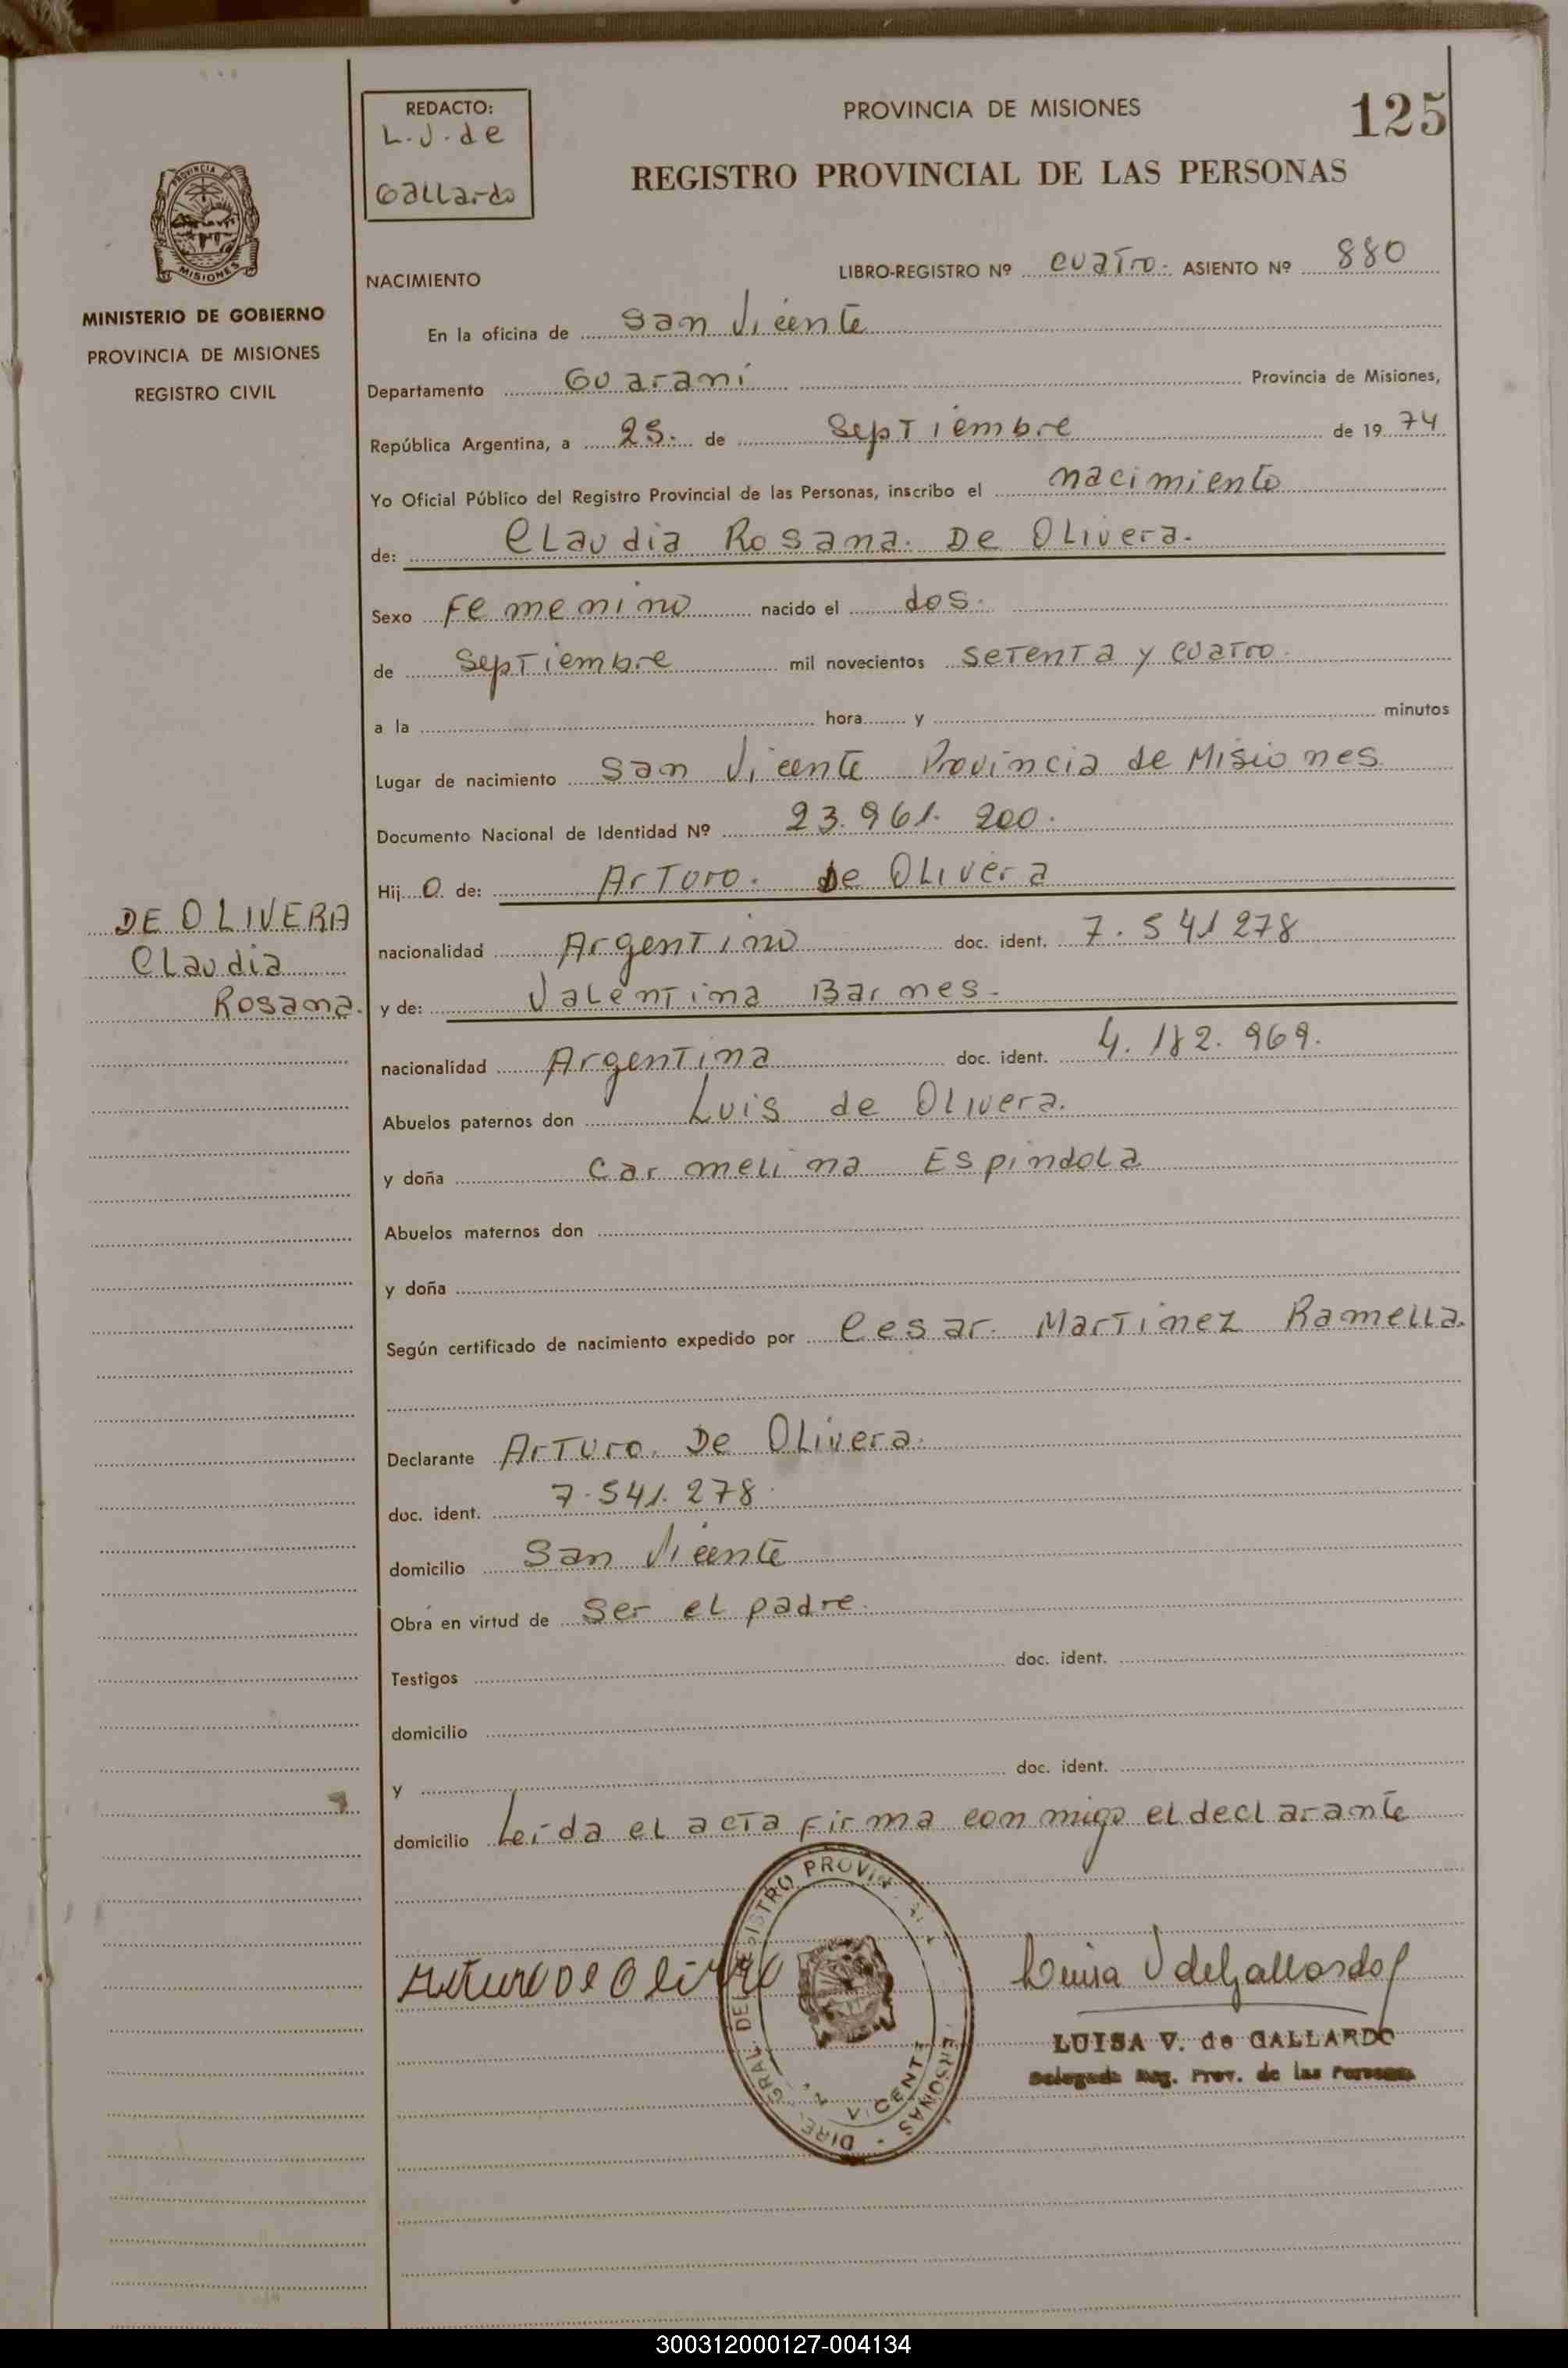 REDACTO:
L. J. de
Gallardo
PROVINCIA DE MISIONES
125
REGISTRO PROVINCIAL DE LAS PERSONAS
PROVINCIA DE
MISIONES
MINISTERIO DE GOBIERNO
PROVINCIA DE MISIONES
REGISTRO CIVIL
NACIMIENTO
LIBRO-REGISTRO Nº cuatro. ASIENTO Nº 880
En la oficina de San Vicente
Departamento Guaraní Provincia de Misiones,
República Argentina, a 25. de Septiembre de 19 74
Yo Oficial Público del Registro Provincial de las Personas, inscribo el nacimiento
de: Claudia Rosana. De Olivera.
Sexo Femenino nacido el dos.
de Septiembre mil novecientos setenta y cuatro.
a la hora y minutos
Lugar de nacimiento San Vicente Provincia de Misiones
Documento Nacional de Identidad Nº 23.961.200.
Hij o de: Arturo. de Olivera
nacionalidad Argentino doc. ident. 7.541278
y de: Valentina Barnes.
nacionalidad Argentina doc. ident. 4.182.969.
Abuelos paternos don Luis de Olivera.
y doña Carmelina Espindola
Abuelos maternos don
y doña
Según certificado de nacimiento expedido por Cesar. Martinez Ramella.
Declarante Arturo. De Olivera.
doc. ident. 7.541.278.
domicilio San Vicente
Obra en virtud de Ser el padre.
Testigos doc. ident.
domicilio
y doc. ident.
domicilio Leída el acta firma conmigo el declarante
DE OLIVERA
Claudia
Rosana.
Arturo De Olivera
Luisa V de Gallardo
LUISA V. de GALLARDO
Delegada Reg. Prov. de las Personas
300312000127-004134